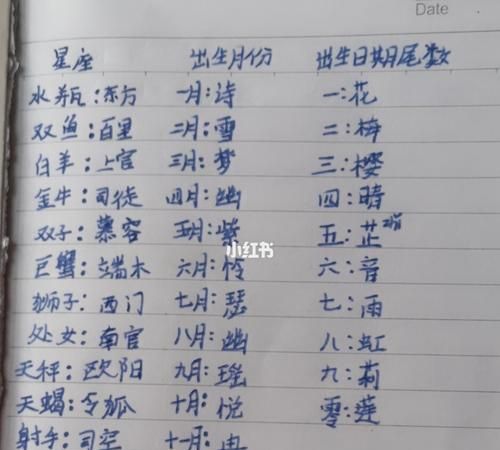 Date
星座 出生月份 出生日期尾数
水瓶：东方 一月：诗 一：花
双鱼：百里 二月：雪 二：梅
白羊：上官 三月：梦 三：樱
金牛：司徒 四月：幽 四：晴
双子：慕容 五月：紫 五：芷
巨蟹：端木 六月：怜 六：音
狮子：西门 七月：瑟 七：雨
处女：南宫 八月：幽 八：虹
天秤：欧阳 九月：瑶 九：莉
天蝎：令狐 十月：悦 零：莲
射手：司空 十一月：冉
小红书